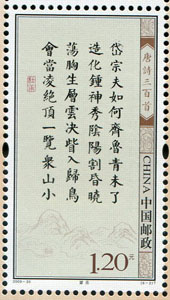 唐诗三百首
岱宗夫如何齊魯青未了
造化鍾神秀陰陽割昏曉
蕩胸生層雲決眥入歸鳥
會當凌絕頂一覽衆山小
CHINA 中国邮政
1.20元
2009-20
望岳